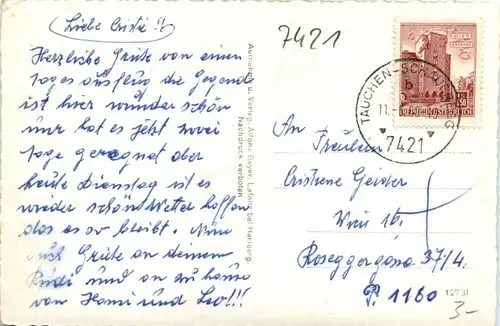 Liebe Cristi!!
Herzliche Grüße von einen
tages ausflug die Gegend
ist hier wunder schön
nur hat es jetzt zwei
Tage geregnet aber
heute Dienstag ist es
wieder schön Wetter hoffen
das es so bleibt. Nun
auch Grüße an deinen
Rudi und an zu hause
von Hanni und Leo!!!
Aufnahme u. Verlag Alfons Bayer, Lafnitz bei Hartberg.
Nachdruck verboten
7421
TAUCHEN-SCH
11.
b
7421
REPUBLIK ÖSTERREICH
An
Fräulein
Cristine Geider
Wien 16.
Roseggergasse 37/4.
P. 1160
12731
3-